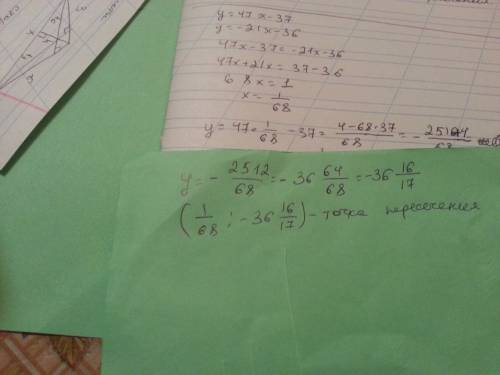 y = 47x - 37
y = -21x - 36
47x - 37 = -21x - 36
47x + 21x = 37 - 36
68x = 1
x = 1/68
y = 47 · 1/68 - 37 = 4-68·37/68 = - 
y = - 2512/68 = - 36 64/68 = -36 16/17
(1/68 ; -36 16/17) - точка пересечения